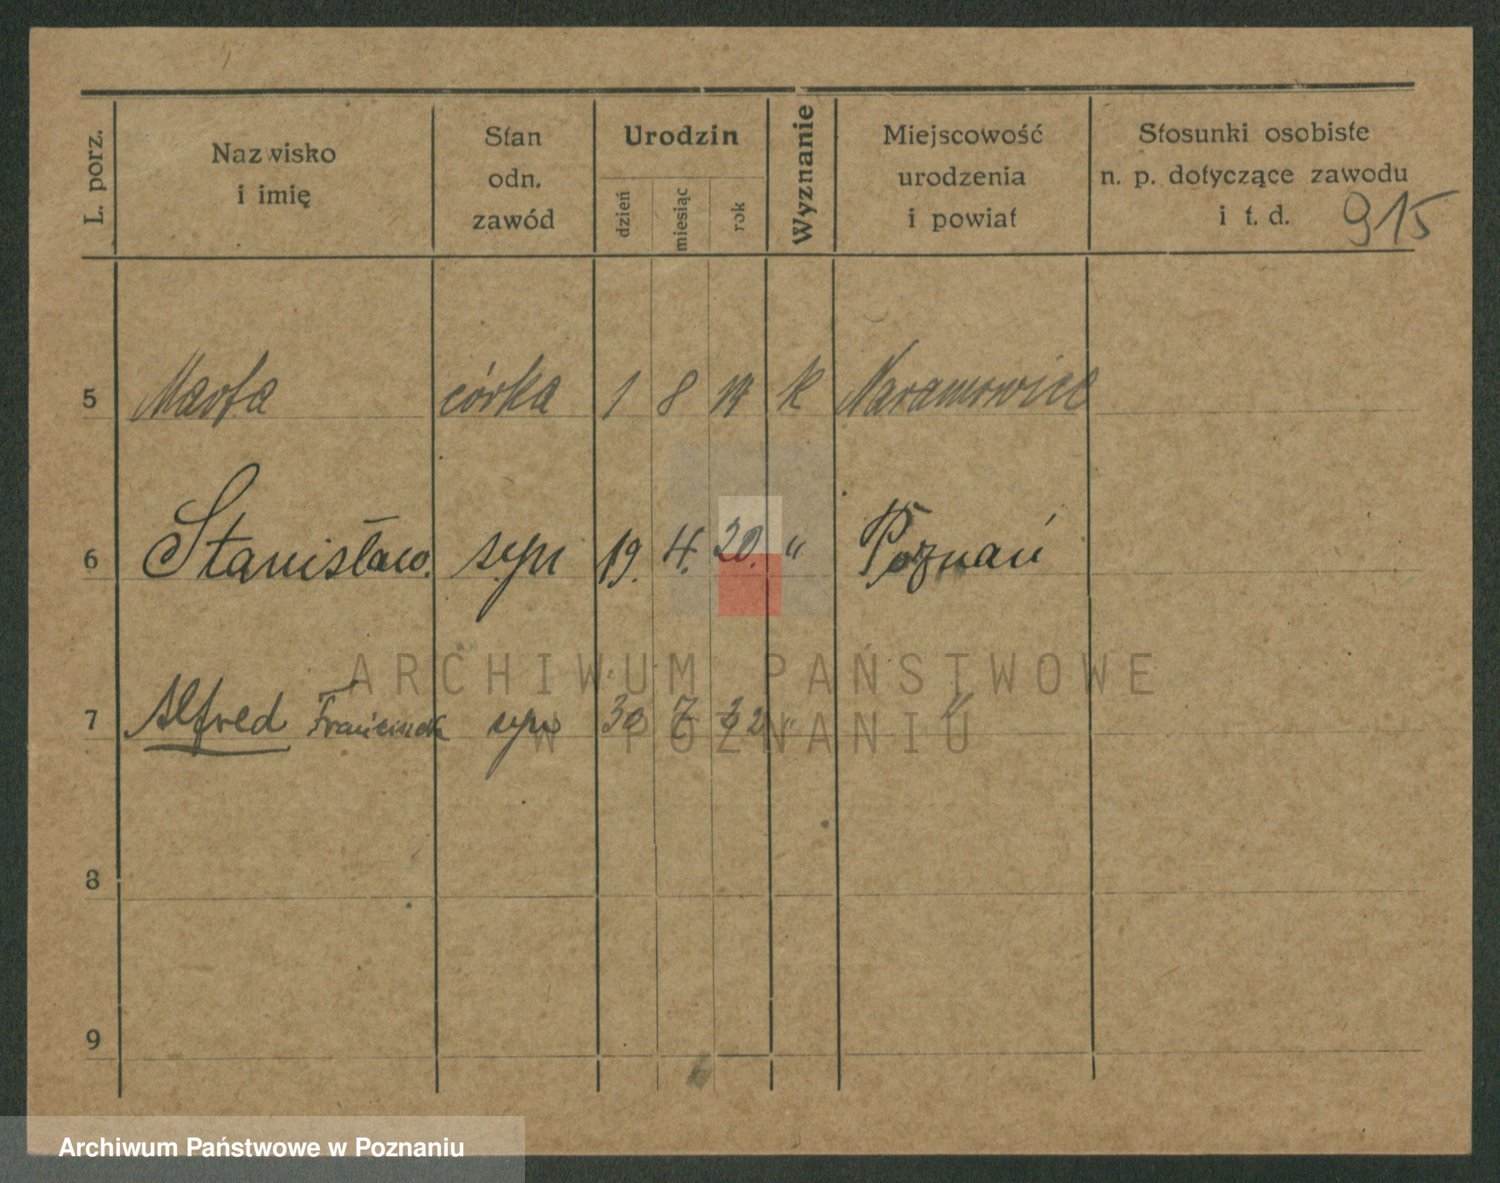 L. porz.
Nazwisko
i imię
Stan
odn.
zawód
Urodzin
dzień
miesiąc
rok
Wyznanie
Miejscowość
urodzenia
i powiat
Stosunki osobiste
n. p. dotyczące zawodu
i t. d.
915
5 Marta córka 1 8 14 k Naramowice
6 Stanisław. syn 19. 4. 20. " Poznań
7 Alfred Franciszek syn 30 7 22 " "
8
9
ARCHIWUM PAŃSTWOWE
W POZNANIU
Archiwum Państwowe w Poznaniu